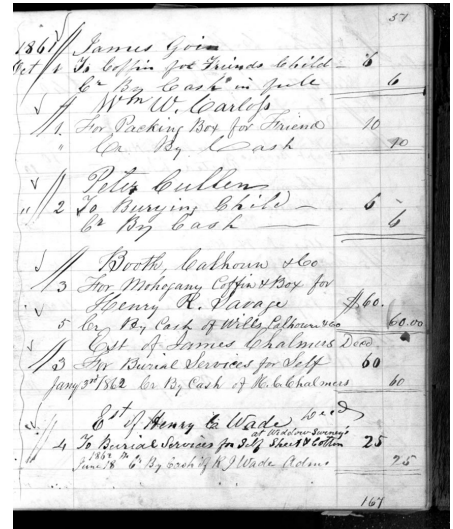 57
1861 James Goin
Oct 1 To Coffin for Friends Child — 6
Cr By Cash in full 6
Wm W. Carloss
1 For Packing Box for Friend 10
" Cr By Cash 10
Peter Cullen
" 2 To Burying Child — 6 -
Cr By Cash — 6
Booth, Calhoun & Co
3 For Mohogany Coffin & Box for
Henry R. Savage $60.
5 Cr By Cash of Wills Calhoun & Co 60.00
Est of James Chalmers Decd
3 For Burial Services for Self 60
Jany 3rd 1862 Cr By Cash of H. C. Chalmers 60
Est of Henry C. Wade Decd
at Widdow Sweney's
4 To Burial Services for Self Sheet & Cotton 25
1862
June 18 Cr By Cash of R J Wade Adms 25
167